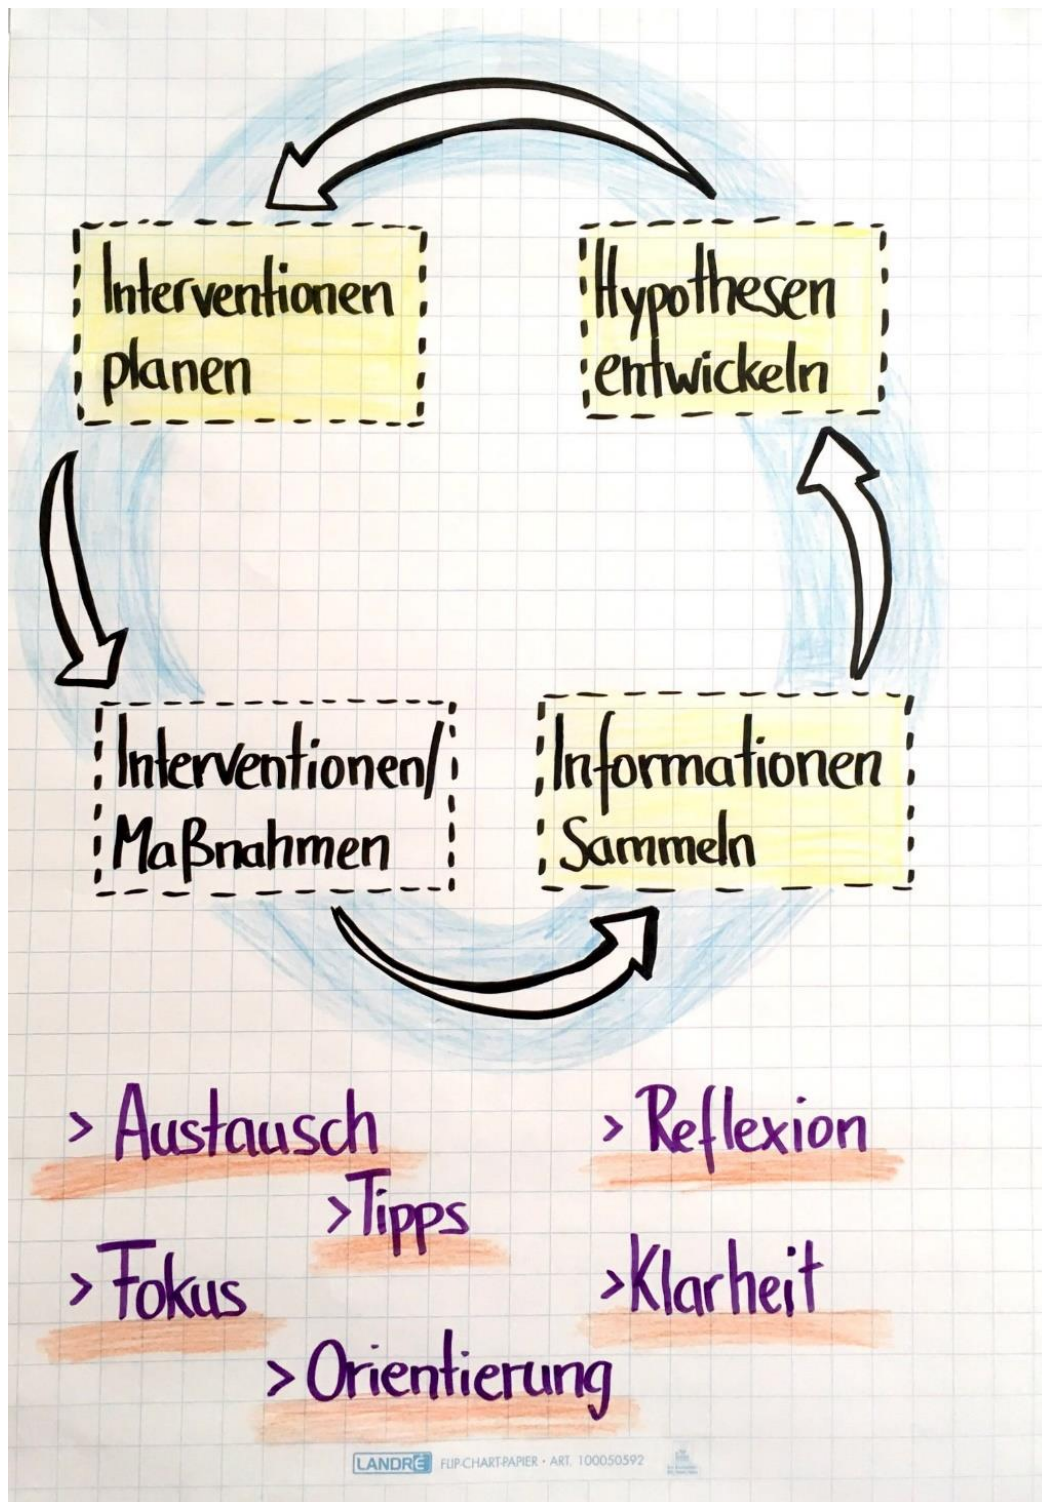 Interventionen
planen
Hypothesen
entwickeln
Interventionen/
Maßnahmen
Informationen
Sammeln
> Austausch
> Reflexion
> Tipps
> Fokus
> Klarheit
> Orientierung
LANDRÉ FLIP-CHART-PAPIER • ART. 100050592